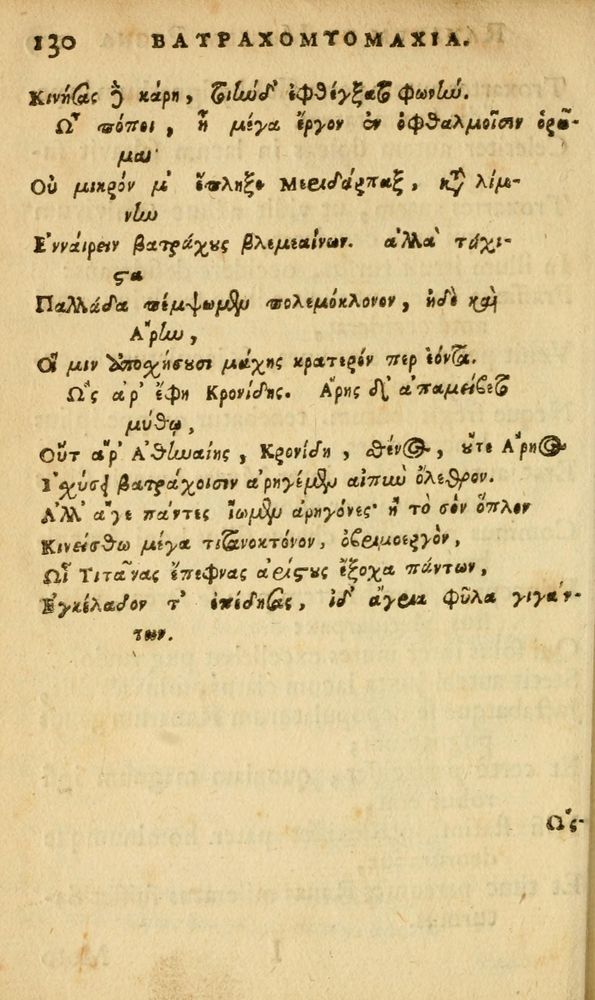 130 ΒΑΤΡΑΧΟΜΥΟΜΑΧΙΑ.
Κινήσας δὲ κάρη, τὼδ' ἐφθέγξατο φωνήν.
Ὢ πόποι, ἦ μέγα ἔργον ἐν ὀφθαλμοῖσιν ὁρῶ-
μαι·
Οὐ μικρόν μ' ἔπληξε Μεριδάρπαξ, κατὰ λίμ-
νην
Ἐνναίρειν βατράχους βλεμεαίνων. ἀλλὰ τάχι-
στα
Παλλάδα πέμψωμεν πολεμόκλονον, ἠδὲ καὶ
Ἄρην,
Οἵ μιν ἀποχήσουσι μάχης κρατερόν περ ἐόντα.
Ὣς ἄρ' ἔφη Κρονίδης. Ἄρης δ' ἀπαμείβετο
μύθῳ,
Οὔτ' ἄρ' Ἀθηναίης, Κρονίδη, σθένος, οὔτε Ἄρηος
Ἰχύσει βατράχοισιν ἀρηγέμεν αἰπὺν ὄλεθρον.
Ἀλλ' ἄγε πάντες ἴωμεν ἀρηγόνες· ἢ τὸ σὸν ὅπλον
Κινείσθω μέγα τιτανοκτόνον, ὀβριμοεργὸν,
Ὧι Τιτᾶνας ἔπεφνας ἀρίστους ἔξοχα πάντων,
Ἐγκέλαδόν τ' ἐπέδησας, ἰδ' ἄγρια φῦλα γιγάν-
των.
Ὥς·